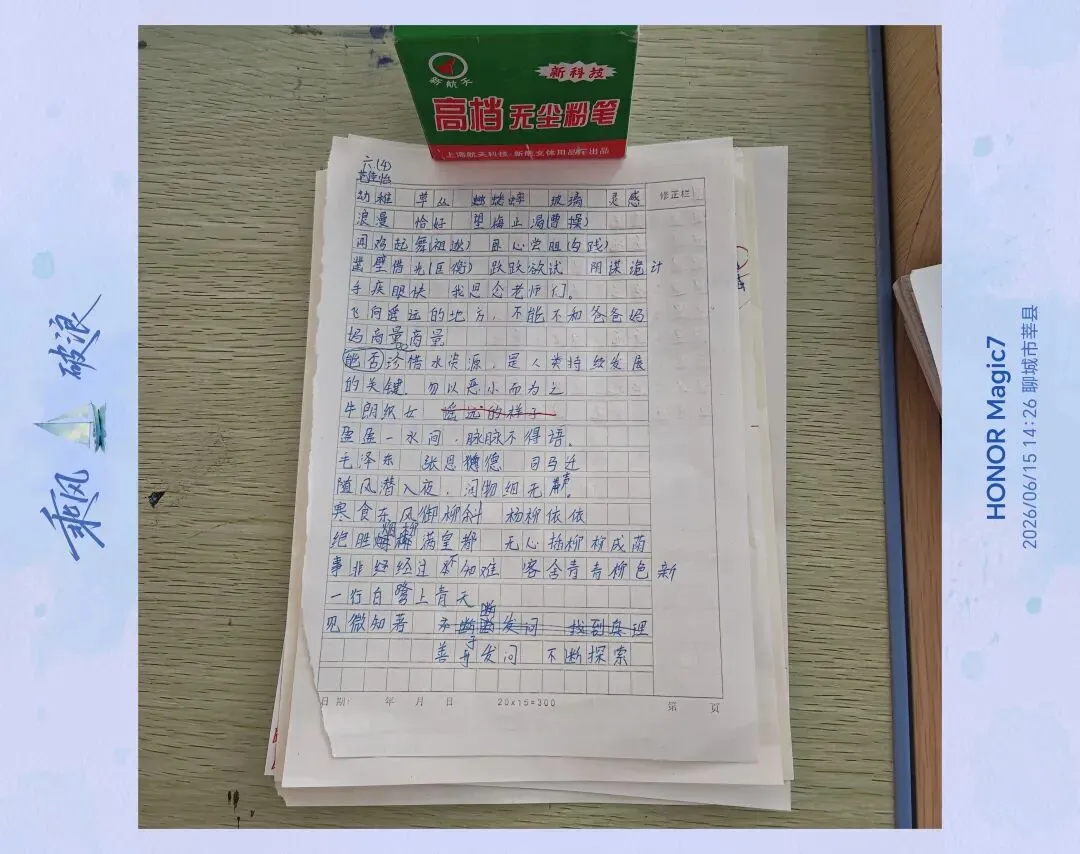 新航天
新科技
高档无尘粉笔
上海航天科技·新航文体用品厂出品
六(4)
幼稚 草丛 蟋蟀 玻璃 灵感
修正栏
浪漫 恰好 望梅止渴(曹操)
闻鸡起舞(祖逖) 卧心尝胆(勾践)
凿壁借光(匡衡) 跃跃欲试 阴谋诡计
手疾眼快 我思念老师们。
飞向遥远的地方,不能不和爸爸妈
妈商量商量
能否珍惜水资源,是人类持续发展
的关键。勿以恶小而为之
牛朗织女 遥远的样子
盈盈一水间,脉脉不得语。
毛泽东 张思德 司马迁
随风潜入夜,润物细无声。
寒食东风御柳斜 杨柳依依
绝胜烟柳满皇都 无心插柳柳成荫
事非经经过不知难 客舍青青柳色新
一行白鹭上青天
见微知著 不断发问 找到真理
善于发问 不断探索
日期: 年 月 日 20×15=300 第 页
乘风破浪
HONOR Magic7
2026/06/15 14:26 聊城市莘县